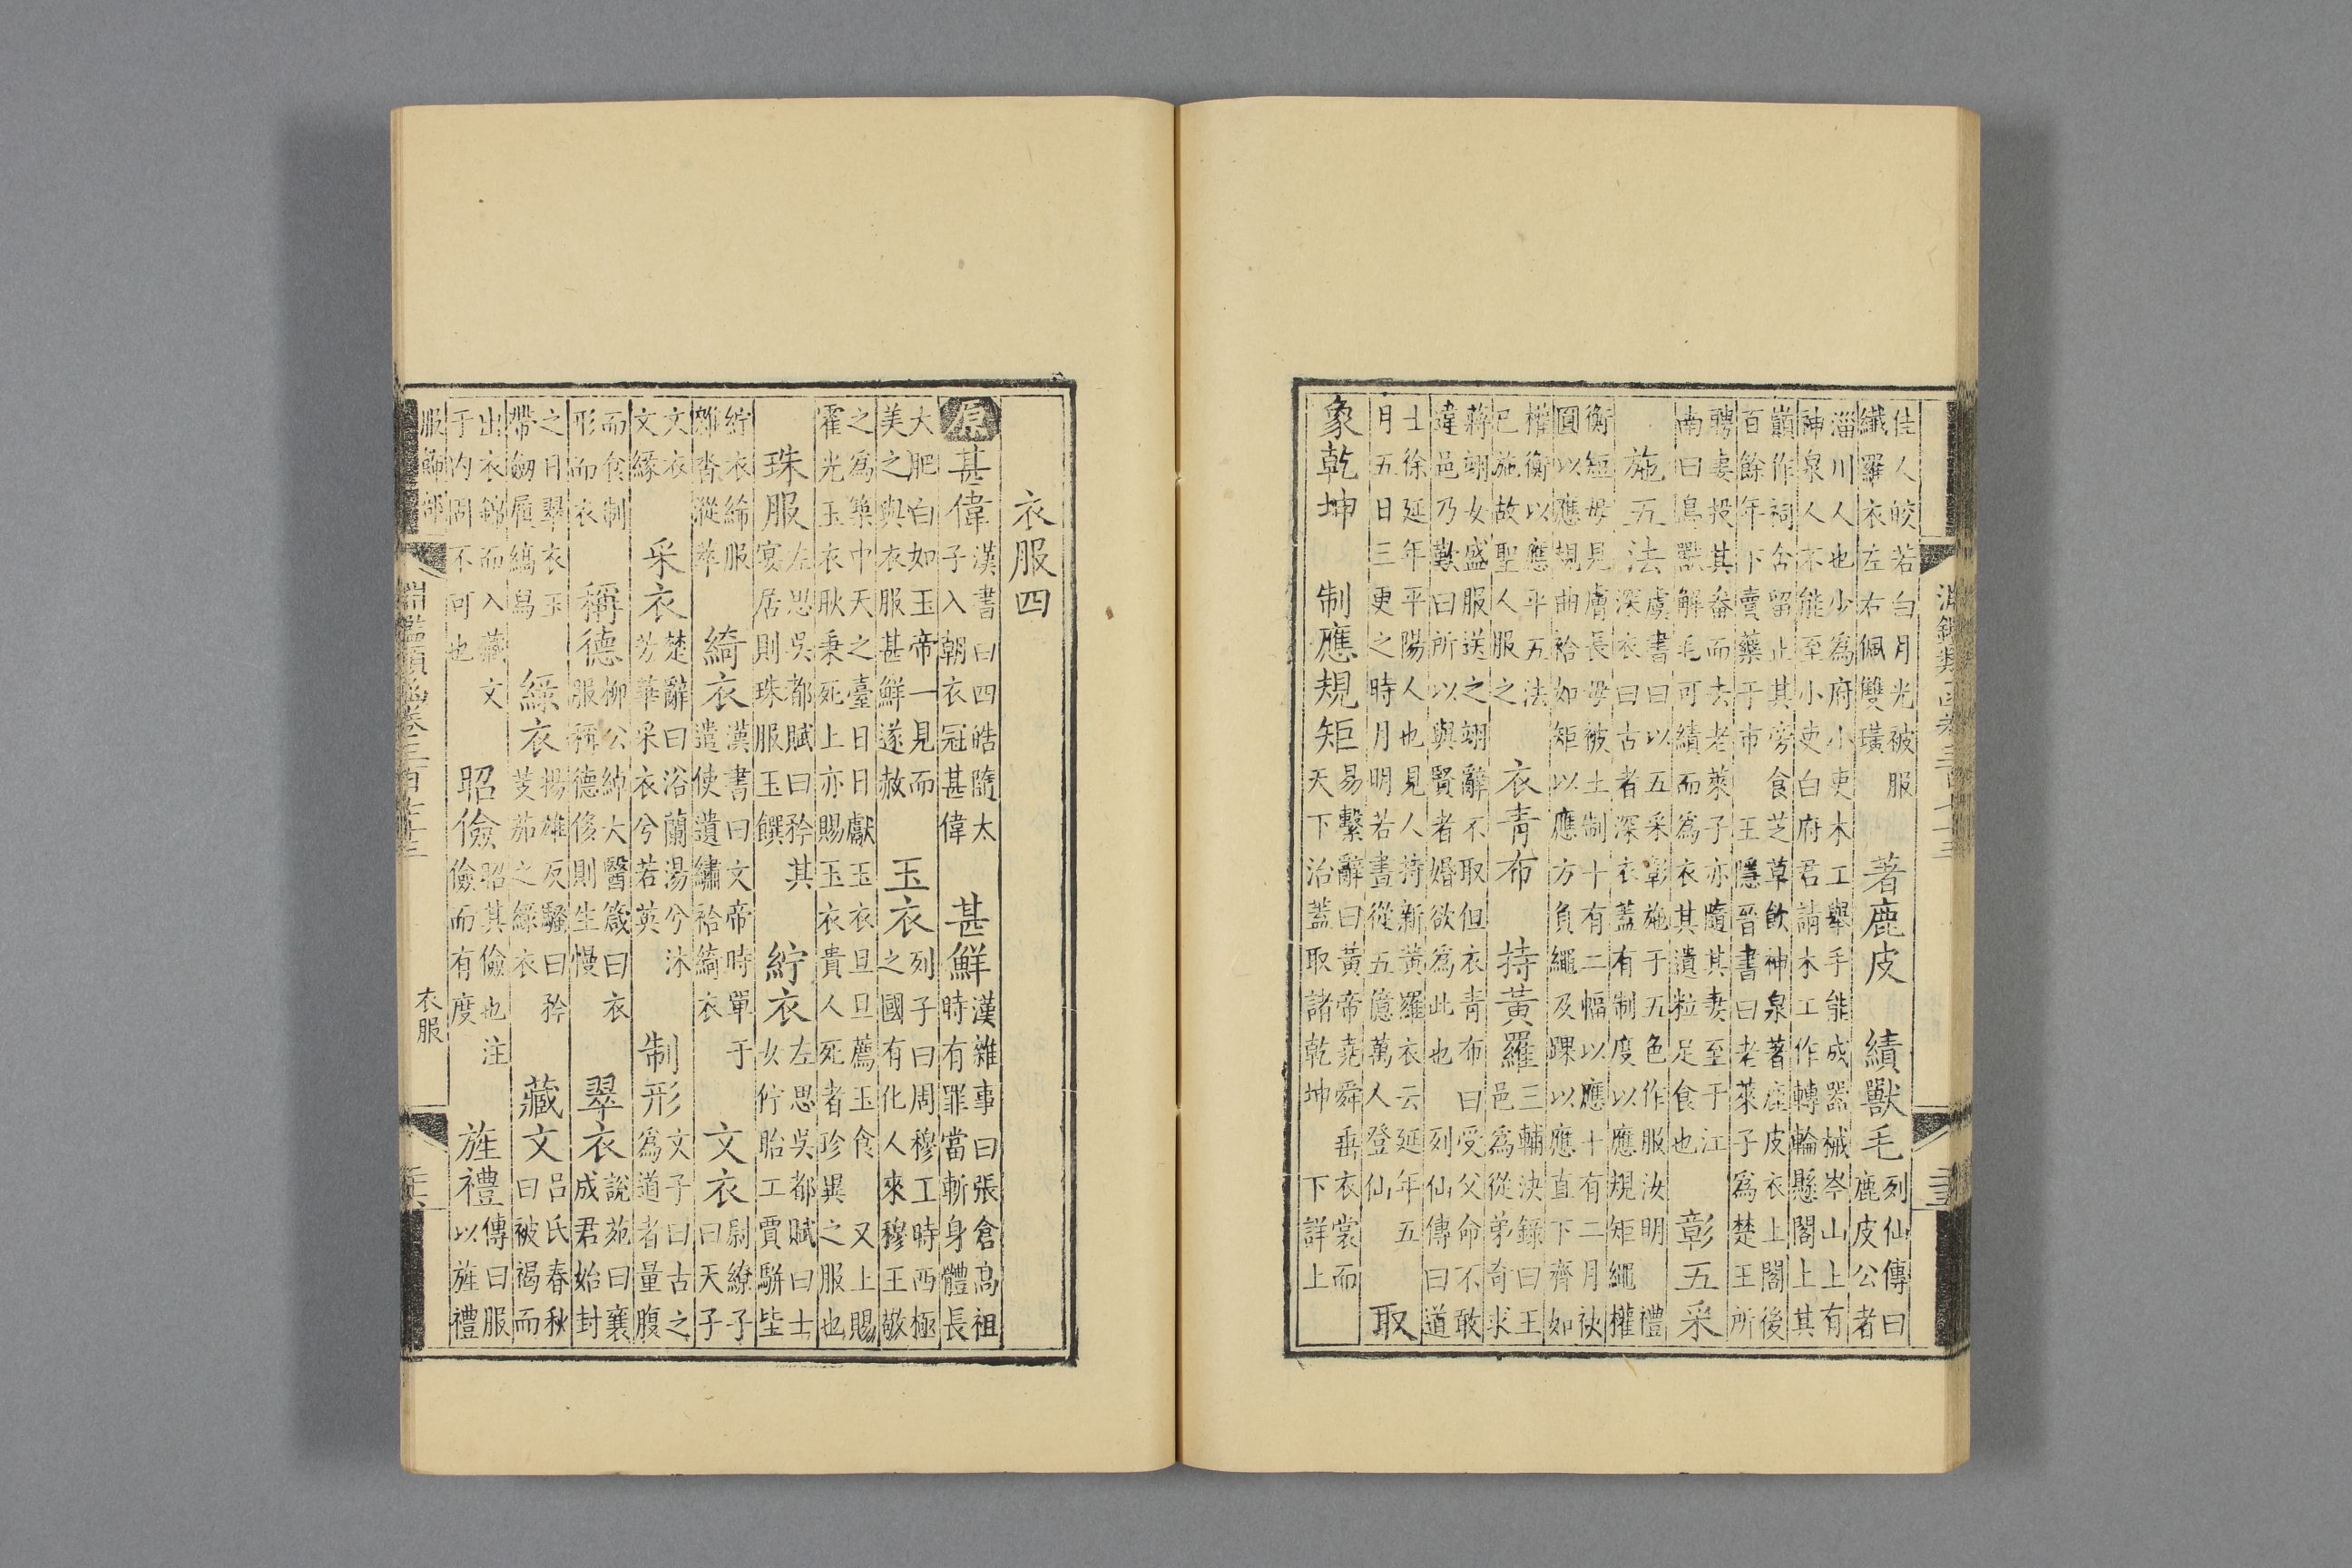 淵鑑類函卷三百七十三
佳人皎若白月光被服纎羅衣左右佩雙璜 著鹿皮 績獸毛 列仙傳曰鹿皮公者
淄川人也少為府小吏木工舉手能成器械岑山上有
神泉人不能至小吏白府君請木工作轉輪懸閣上上其
巔作祠舍留止其旁食芝草飲神泉著鹿皮衣上閣後
百餘年下賣藥于市 王隱晉書曰老萊子為楚王所
聘妻投其畚而去老萊子亦隨其妻至于江
南曰鳥獸解毛可績而為衣其遺粒足食也 彰五采
施五法 虞書曰以五采彰施于五色作服汝明 禮
深衣曰古者深衣蓋有制度以應規矩繩權
衡短毋見膚長毋被土制十有二幅以應十有二月袂
圓以應規曲袷如矩以應方負繩及踝以應直下齊如
權衡以應平五法已施故聖人服之 衣青布 持黃羅 三輔決錄曰王邑為從弟奇求
蔣翊女盛服送之翊辭不取但衣青布曰受父命不敢
違邑乃歎曰所以與賢者婚欲為此也 列仙傳曰道
士徐延年平陽人也見人持新黃羅衣云延年五
月五日三更之時月明若晝從五億萬人登仙 取
象乾坤 制應規矩 易繫辭曰黃帝堯舜垂衣裳而天下治蓋取諸乾坤 下詳上
衣服四
原 甚偉 漢書曰四皓隨太子入朝衣冠甚偉 甚鮮 漢雜事曰張倉高祖時有罪當斬身體長
大肥白如玉帝一見而美之與衣服甚鮮遂赦 玉衣 列子曰周穆工時西極之國有化人來穆王敬
之為築中天之臺日日獻玉衣旦旦薦玉食 又上賜
霍光玉衣耿秉死上亦賜玉衣貴人死者珍異之服也
珠服 左思吳都賦曰矜其宴居則珠服玉饌 紵衣 左思吳都賦曰士女佇眙工賈駢坒
紵衣絺服雜沓漎萃 綺衣 漢書曰文帝時單于遣使遺繡袷綺衣 文衣 尉繚子曰天子
文衣文緣 采衣 楚辭曰浴蘭湯兮沐芳華采衣兮若英 制形 文子曰古之為道者量腹
而食制形而衣 稱德 柳公綽大醫箴曰衣服稱德侈則生慢 翠衣 說苑曰襄成君始封
之日翠衣玉帶劒履縞舄 綠衣 揚雄反騷曰矜芰茄之綠衣 藏文 呂氏春秋曰被褐而
出衣錦而入藏文于內固不可也 昭儉 昭其儉也注儉而有度 旌禮 傳曰服以旌禮
服飾部 衣服
淵鑑類函卷三百七十三